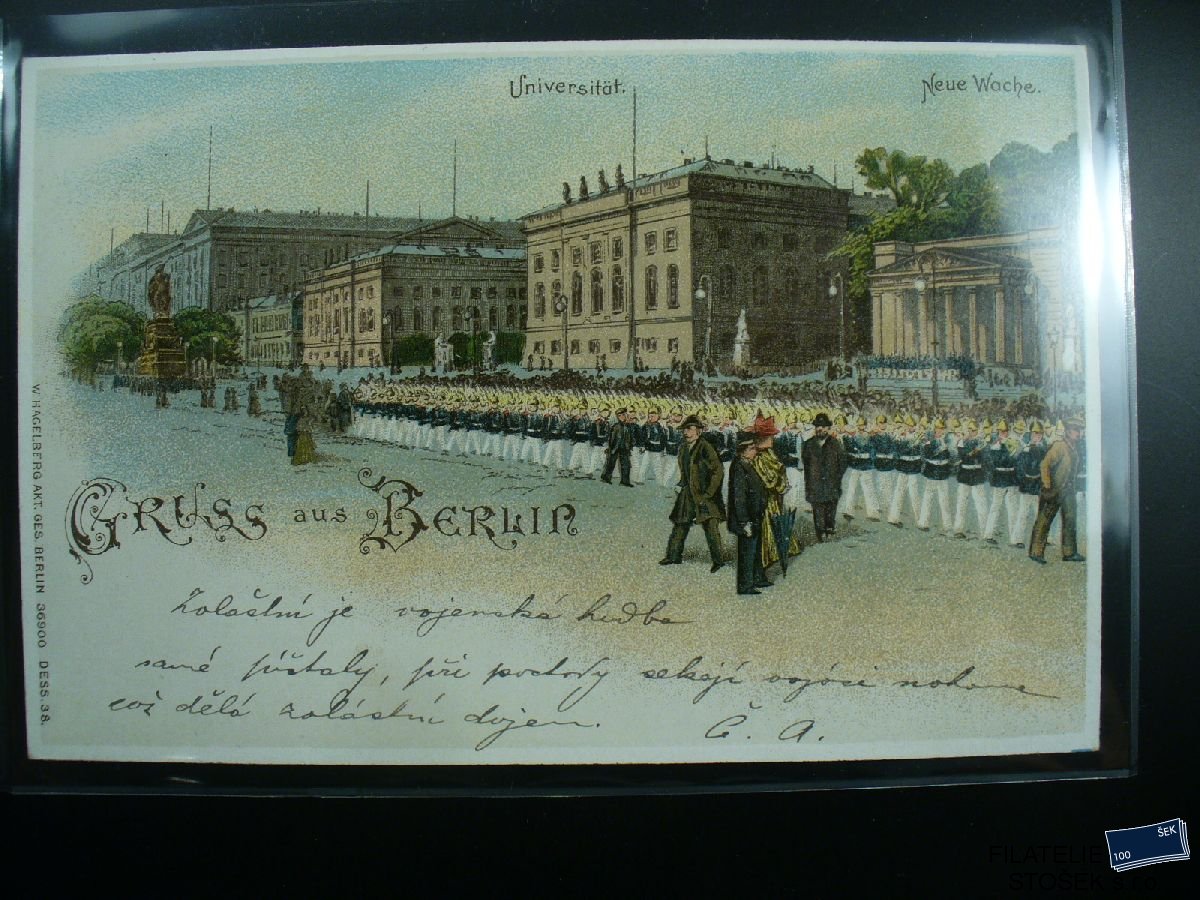 Universität.
Neue Wache.
W. HAGELBERG AKT. GES. BERLIN 36900 DESS. 38.
GRUSS AUS BERLIN
Zoláštní je vojenská hudba
samé píšťaly, při pochody sekají vojáci nohama
což dělá zoláštní dojem.
Č. A.
ŠEK
100
FILATELIE
STOŠEK s.r.o.